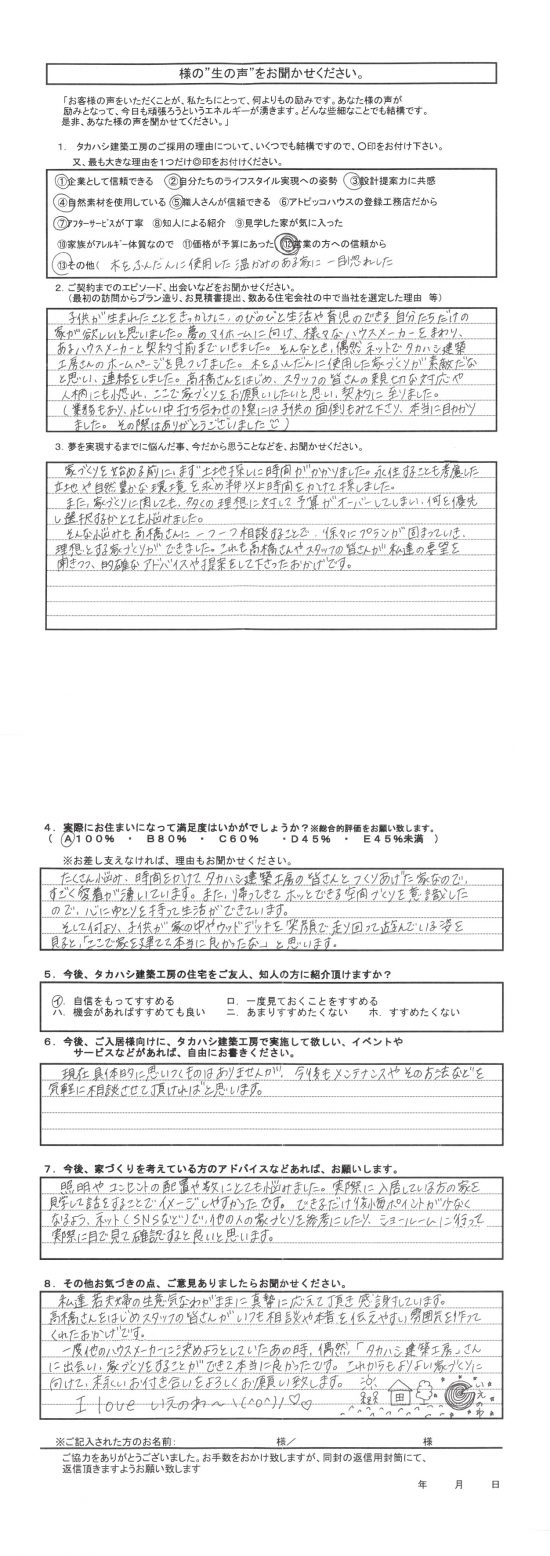 様の”生の声”をお聞かせください。
「お客様の声をいただくことが、私たちにとって、何よりもの励みです。あなた様の声が
励みとなって、今日も頑張ろうというエネルギーが湧きます。どんな些細なことでも結構です。
是非、あなた様の声を聞かせてください。」
1. タカハシ建築工房のご採用の理由について、いくつでも結構ですので、〇印をお付け下さい。
又、最も大きな理由を1つだけ◎印をお付けください。
①企業として信頼できる ②自分たちのライフスタイル実現への姿勢 ③設計提案力に共感
④自然素材を使用している ⑤職人さんが信頼できる ⑥アトピッコハウスの登録工務店だから
⑦アフターサービスが丁寧 ⑧知人による紹介 ⑨見学した家が気に入った
⑩家族がアレルギー体質なので ⑪価格が予算にあった ⑫営業の方への信頼から
⑬その他( 木をふんだんに使用した温かみのある家に一目惚れした
2. ご契約までのエピソード、出会いなどをお聞かせください。
(最初の訪問からプラン造り、お見積書提出、数ある住宅会社の中で当社を選定した理由 等)
子供が生まれたことをきっかけに、のびのびと生活や育児のできる自分たちだけの
家が欲しいと思いました。夢のマイホームに向け、様々なハウスメーカーをまわり、
あるハウスメーカーと契約寸前までいきました。そんなとき、偶然ネットでタカハシ建築
工房さんのホームページを見つけました。木をふんだんに使用した家づくりが素敵だな
と思い、連絡をしました。高橋さんをはじめ、スタッフの皆さんの親切な対応や
人柄にも惚れ、ここで家づくりをお願いしたいと思い、契約に至りました。
(業務もあり、忙しい中打ち合わせの際には子供の面倒もみて下さり、本当に助かり
ました。その際はありがとうございました)
3. 夢を実現するまでに悩んだ事、今だから思うことなどを、お聞かせください。
家づくりを始める前に、まず土地探しに時間がかかりました。永住することも考慮した
立地や自然豊かな環境を求め半年以上時間をかけて探しました。
また、家づくりに関しても、多くの理想に対して予算がオーバーしてしまい、何を優先
し選択するかとても悩みました。
そんな悩みも高橋さんに一つ一つ相談することで、徐々にプランが固まっていき、
理想とする家づくりができました。これも高橋さんやスタッフの皆さんが私達の要望を
聞きつつ、的確なアドバイスや提案をして下さったおかげです。
4. 実際にお住まいになって満足度はいかがでしょうか？※総合的評価をお願い致します。
( A100% ・ B80% ・ C60% ・D45% ・ E45%未満 )
※お差し支えなければ、理由もお聞かせください。
たくさん悩み、時間をかけてタカハシ建築工房の皆さんとつくりあげた家なので、
すごく愛着が湧いています。また、帰ってきてホッとできる空間づくりを意識した
ので、心にゆとりを持って生活ができています。
そして何より、子供が家の中やウッドデッキを笑顔で走り回って遊んでいる姿を
見ると、「ここで家を建てて本当に良かったな」と思います。
5. 今後、タカハシ建築工房の住宅をご友人、知人の方に紹介頂けますか？
イ. 自信をもってすすめる ロ. 一度見ておくことをすすめる
ハ. 機会があればすすめても良い ニ. あまりすすめたくない ホ. すすめたくない
6. 今後、ご入居様向けに、タカハシ建築工房で実施して欲しい、イベントや
サービスなどがあれば、自由にお書きください。
現在具体的に思いつくものはありませんが、今後もメンテナンスやその方法などを
気軽に相談させて頂ければと思います。
7. 今後、家づくりを考えている方のアドバイスなどあれば、お願いします。
照明やコンセントの配置や数にとても悩みました。実際に入居している方の家を
見学して話をすることでイメージしやすかったです。できるだけ後悔ポイントが少なく
なるよう、ネット(SNSなど)で、他の人の家づくりを参考にしたり、ショールームに行って
実際に目で見て確認すると良いと思います。
8. その他お気づきの点、ご意見ありましたらお聞かせください。
私達若夫婦の生意気なわがままに真摯に応えて頂き感謝しています。
高橋さんをはじめスタッフの皆さんがいつも相談や本音を伝えやすい雰囲気を作って
くれたおかげです。
一度他のハウスメーカーに決めようとしていたあの時、偶然、「タカハシ建築工房」さん
に出会い、家づくりをすることができて本当に良かったです。これからもよりよい家づくりに
向けて、末永いお付き合いをよろしくお願い致します。
I love いえのわ〜\(^o^)/♡♡
田
いえのわ
※ご記入された方のお名前: 様/ 様
ご協力をありがとうございました。お手数をおかけ致しますが、同封の返信用封筒にて、
返信頂きますようお願い致します
年 月 日